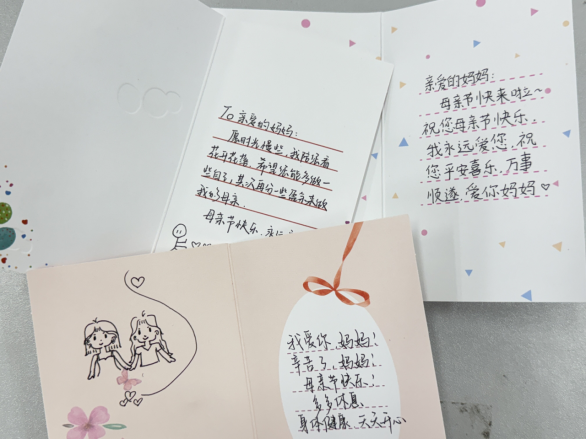 To 亲爱的妈妈:
愿时光慢些,我陪你看
花开花落,希望你能多做一
些自己,其次再分一些爱来做
我的母亲.
母亲节快乐
亲爱的妈妈:
母亲节快来啦~
祝您母亲节快乐,
我永远爱您,祝
您平安喜乐,万事
顺遂,爱你妈妈♡
我爱你,妈妈!
辛苦了,妈妈!
母亲节快乐!
多多休息
身体健康 天天开心